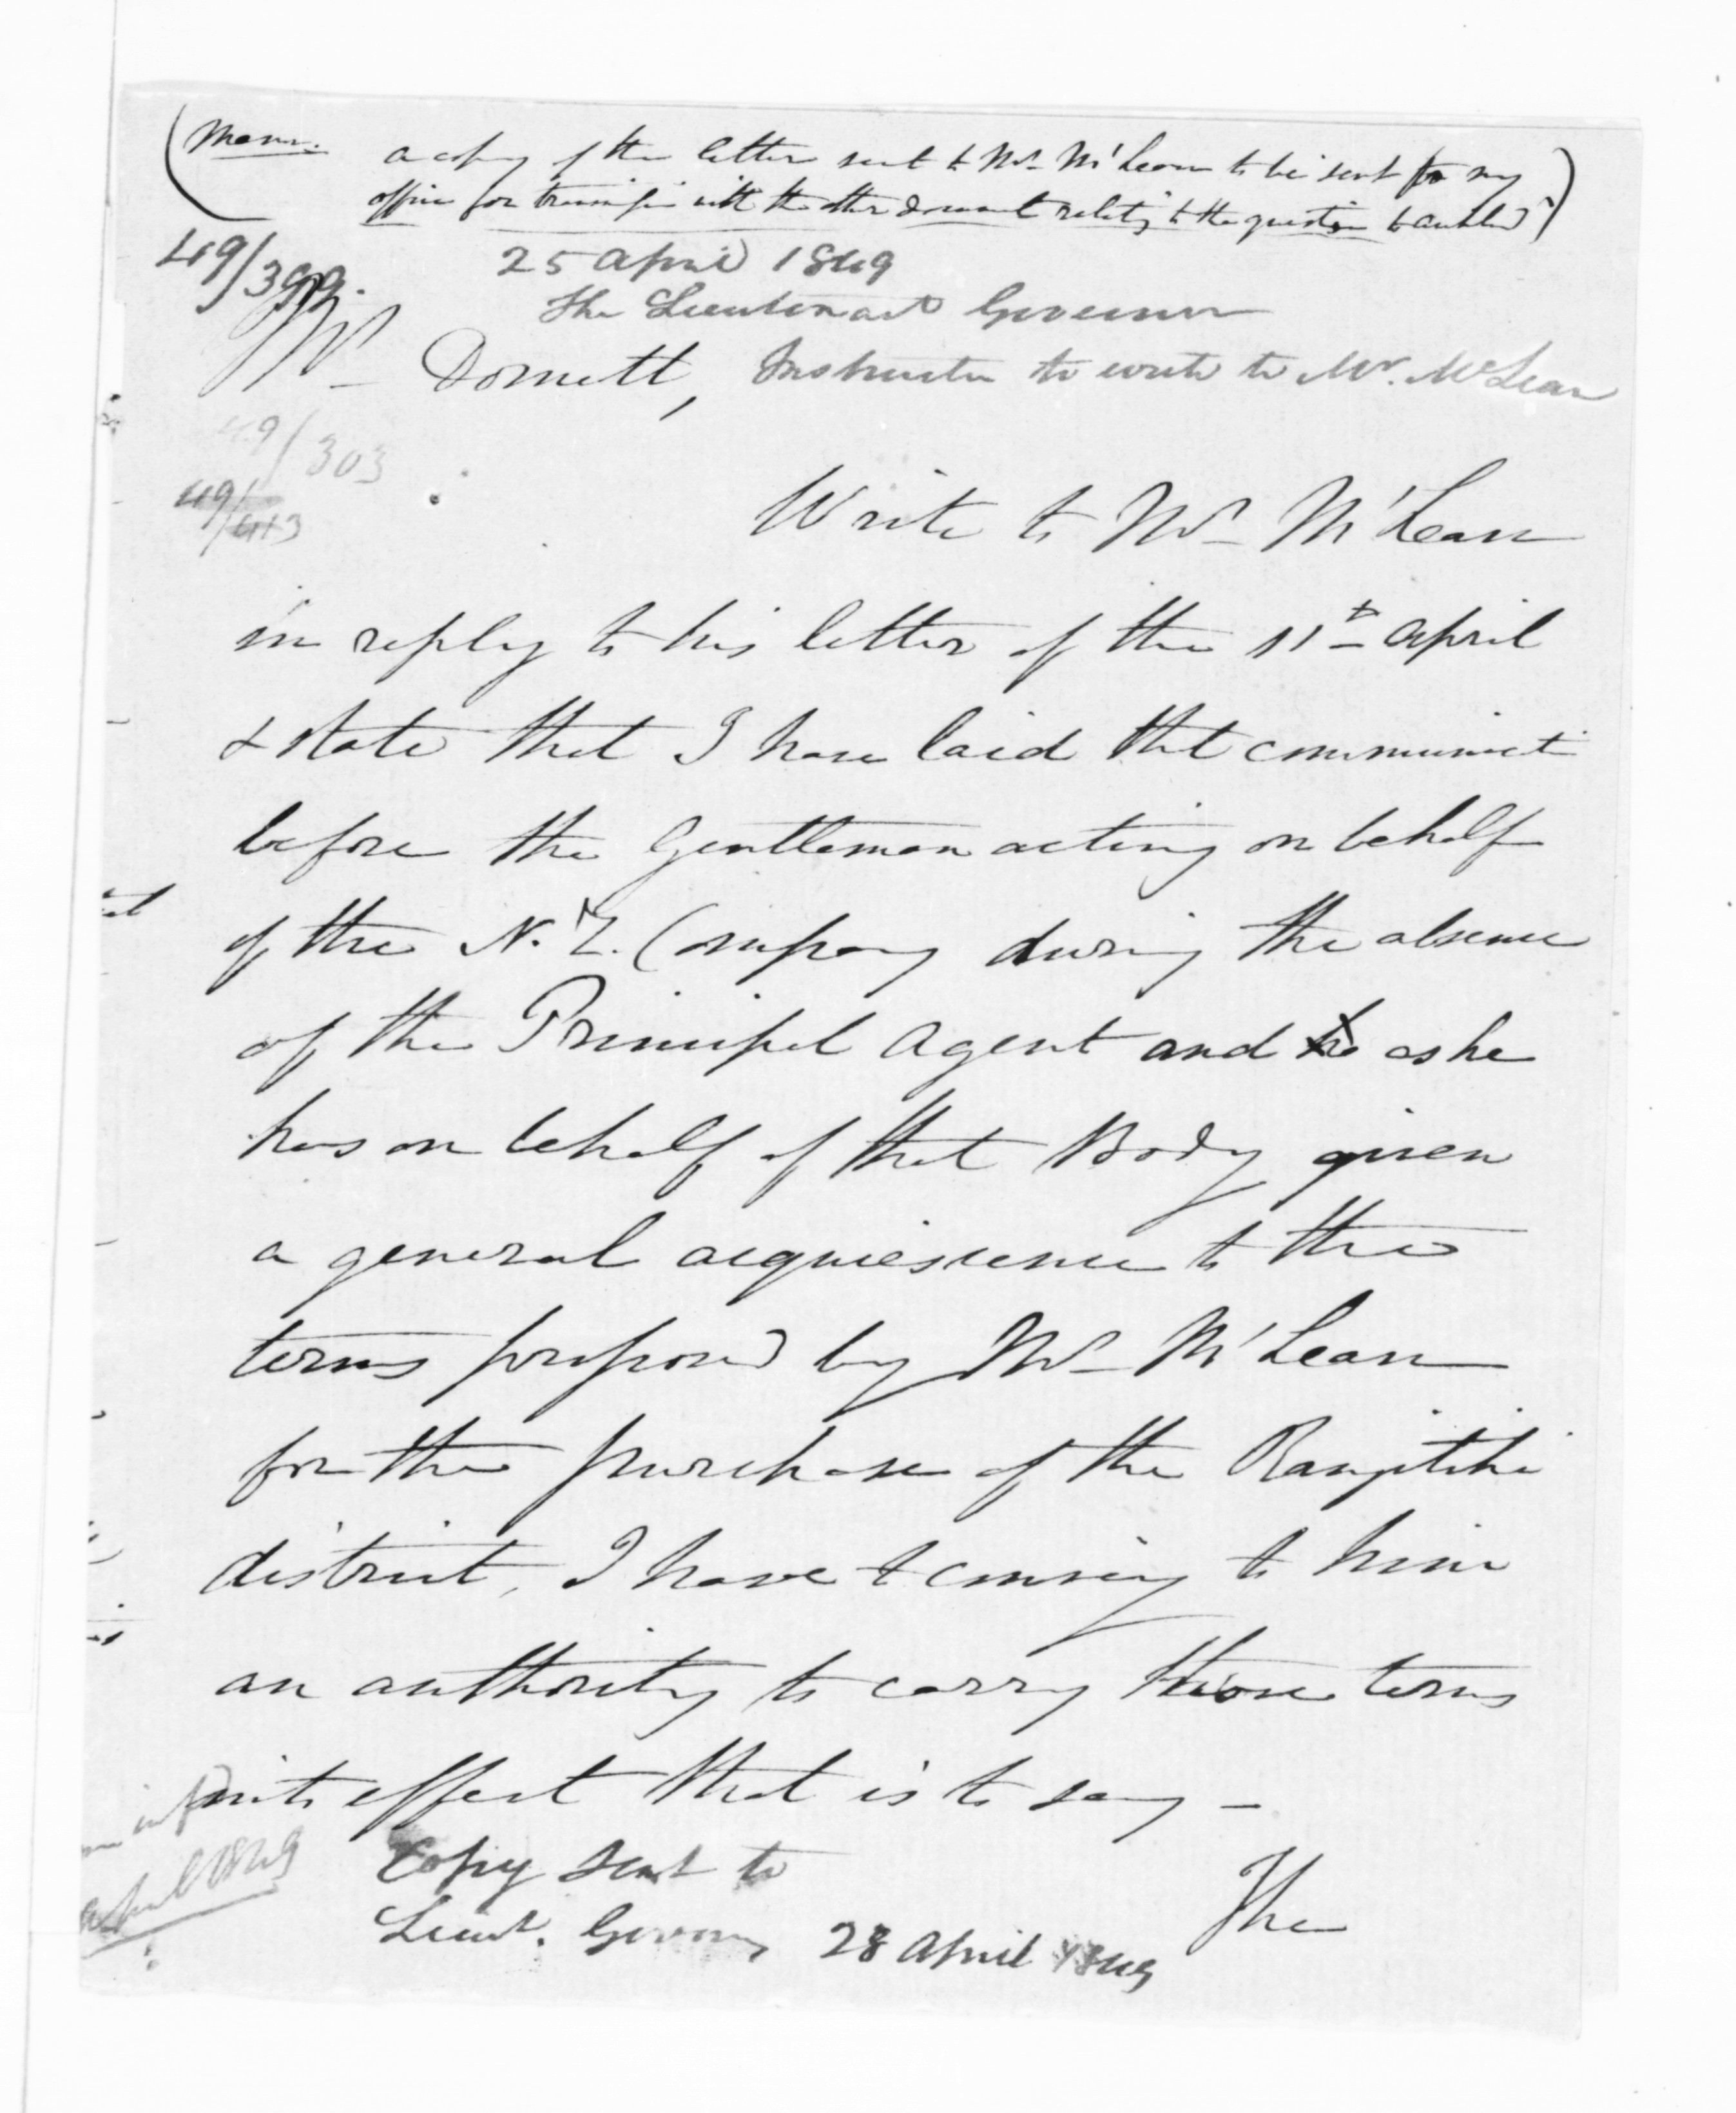 Memo. a copy of the letter sent to Mr M'Lean to be sent to my
office for transmission with the other documents relating to the question to Auckland
49/399.
25 April 1849
The Lieutenant Governor
Mr Domett, Instructn to write to Mr. McLean
49/303
49/413
Write to Mr M'Lean
in reply to his letter of the 11th April
& state that I have laid that communicat
before the Gentleman acting on behalf
of the N. Z. Company during the absence
of the Principal Agent and as he
has on behalf of that Body given
a general acquiescence to the
terms proposed by Mr M'Lean
for the purchase of the Rangitiki
district, I have to convey to him
an authority to carry those terms
into effect that is to say -
April 1849
Copy sent to
Lieut. Governor 28 April 1849
The